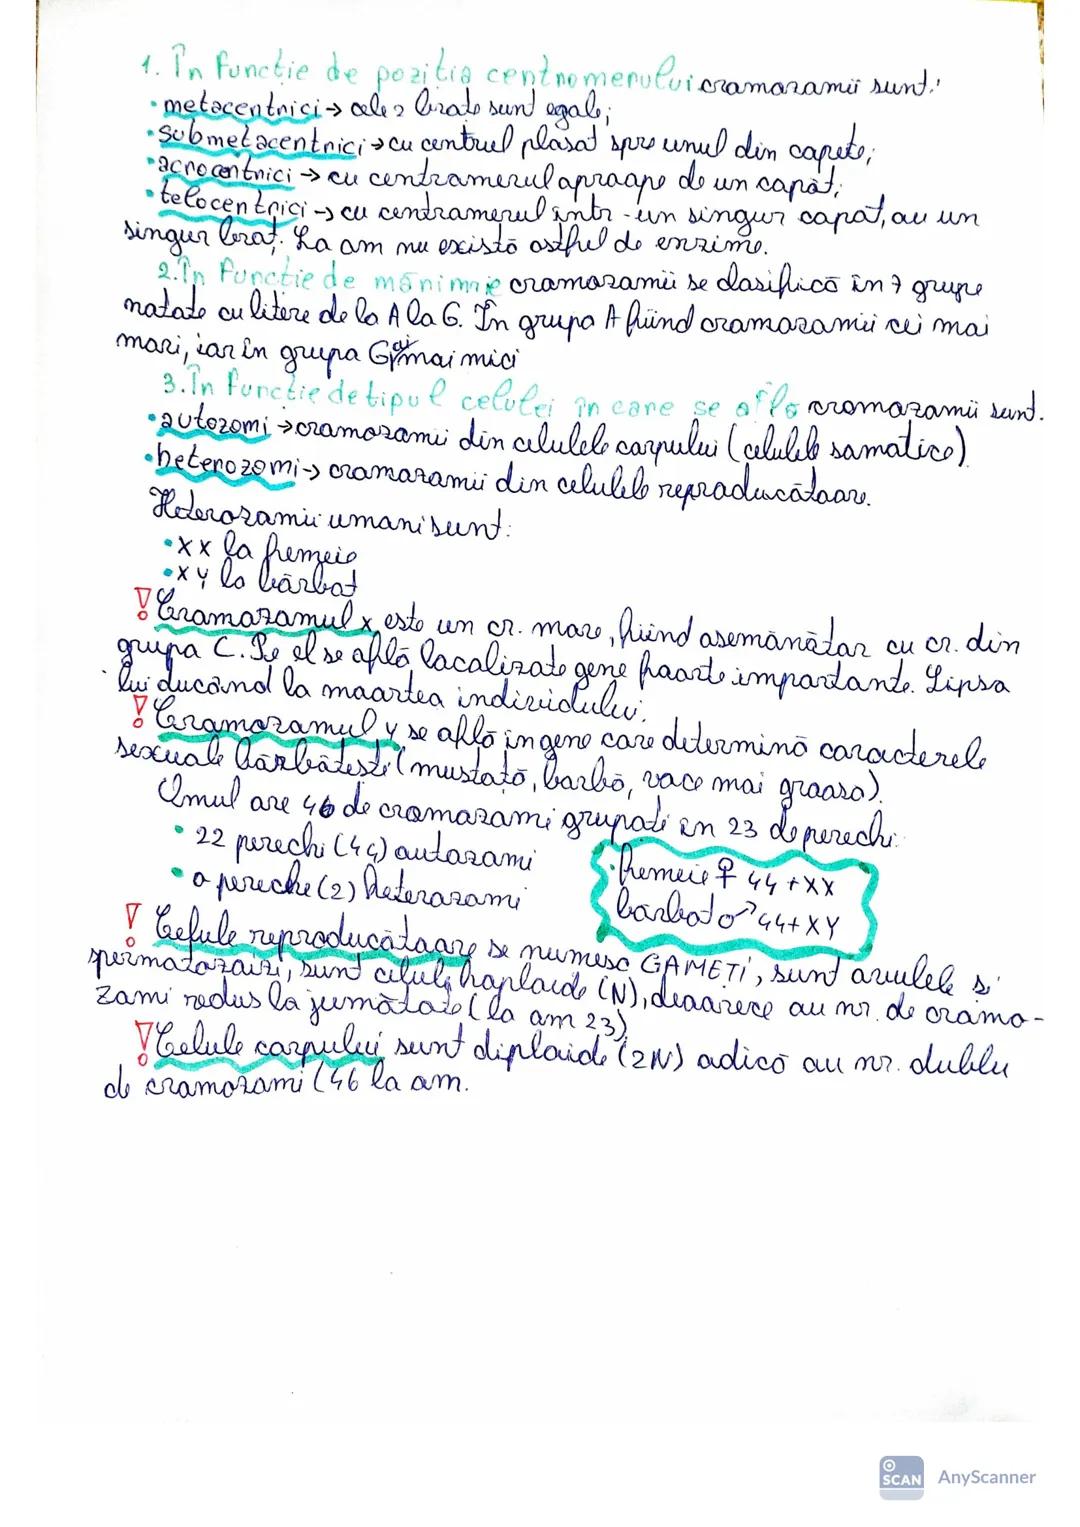 1. În funcție de poziția centromerului cromozomii sunt:
• metacentrici → cele 2 brațe sunt egale;
• submetacentrici → cu centrul plasat spre unul din capete;
• acrocentrici → cu centromerul aproape de un capăt;
• telocentrici → cu centromerul într-un singur capăt, au un
singur braț. La om nu există astfel de enzime.
2. În funcție de mărimie cromozomii se clasifică în 7 grupe
notate cu litere de la A la G. În grupa A fiind cromozomii cei mai
mari, iar în grupa G cei mai mici
3. În funcție de tipul celulei în care se află cromozomii sunt.
• autozomi → cromozomii din celulele corpului (celulele somatice)
• heterozomi → cromozomii din celulele reproducătoare.
Heterozomii umani sunt:
• XX la femeie
• XY la bărbat
! Cromozomul x este un cr. mare, fiind asemănător cu cr. din
grupa C. Pe el se află localizate gene foarte importante. Lipsa
lui ducând la moartea individului.
! Cromozomul y se află în gene care determină caracterele
sexuale bărbătești (mustață, barbă, voce mai groasă).
Omul are 46 de cromozomi grupați în 23 de perechi:
• 22 perechi (44) autozomi
• o pereche (2) heterozomi
• femeie ♀ 44 + XX
bărbat ♂ 44 + XY
! Celule reproducătoare se numesc GAMEȚI, sunt ovulele și
spermatozoizi, sunt celule haploide (N), deoarece au nr. de cromo-
zomi redus la jumătate (la om 23)
! Celule corpului sunt diploide (2N) adică au nr. dublu
de cromozomi (46 la om.
SCAN AnyScanner